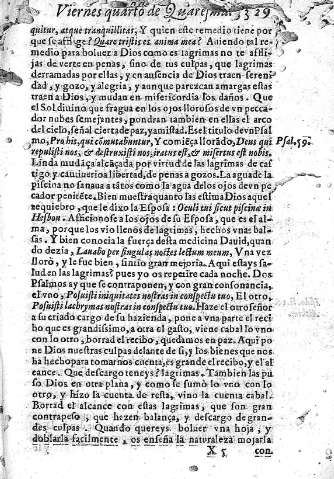 Viernes quarto de Quaresma. 329
quitur, atque tranquillitas. Y quien este remedio tiene por
que se aflige? Quare tristis es anima mea? Auiendo tal re-
medio para boluer a Dios como es lagrimas no te affli-
jas de verte en penas, sino de tus culpas, que lagrimas
derramadas por ellas, y en ausencia de Dios traen sereni-
dad, y gozo, y alegria, y aunque parezcan amargas estas
traen a Dios, y mudan en misericordia los daños. Que
el Sol diuino que fragua en los ojos llorosos de vn pecca-
dor nubes semejantes, pondran tambien en ellas el arco
del cielo, señal cierta de paz, y amistad. Es el titulo de vn Psal
mo, Pro his, qui cõmutabuntur, Y comiẽça llorãdo, Deus qui
Psal. 59.
repulisti nos, & destruxisti nos, iratus est, & misertus est nobis.
Linda mudãça alcãçada por virtud de las lagrimas de cas
tigo y cautiuerio a libertad, de penas a gozos. La agua de la
piscina no sanaua a tãtos como la agua de los ojos deun pe-
cador penitẽte. Bien muestra quanto las estima Dios aquel
requiebro, que le dixo la Esposa: Oculi tui sicut piscine in
Hesbon. Afficionose a los ojos de su Esposa, que es el al-
ma, porque los vio llenos de lagrimas, hechos vnas bal-
sas. Y bien conocia la fuerça desta medicina Dauid, quan
do dezia, Lauabo per singulas noctes lectum meum, Vna vez
llorò, y le fue bien, sintio gran mejoria. Aqui estays sa-
lud en las lagrimas? pues yo os repetire cada noche. Dos
Psalmos ay que se contraponen, y con gran consonancia,
el vno, Posuisti iniquitates nostras in conspectu tuo, El otro,
Posuisti lachrymas nostras in conspectu tuo. Haze el otro señor
a su criado cargo de su hazienda, pone a vna parte el reci
bo que es grandissimo, a otra el gasto, viene cabal lo vno
con lo otro, borrad el recibo, quedamos en paz. Aqui po
ne Dios nuestras culpas delante de si, y los bienes que nos
ha hecho para tomarnos cuenta, es grande el recibo, y el al
cance. Que descargo teneys? lagrimas. Tambien las pu
so Dios en otra plana, y como se sumò lo vno con lo
otro, y hizo la cuenta de resta, vino la cuenta cabal.
Borrad el alcance con estas lagrimas, que son gran
contrapeso, que hezen balança, y descargo de gran-
des culpas. Quando quereys boluer vna hoja, y
doblarla facilmente, os enseña la naturaleza mojarla
X 5 con.